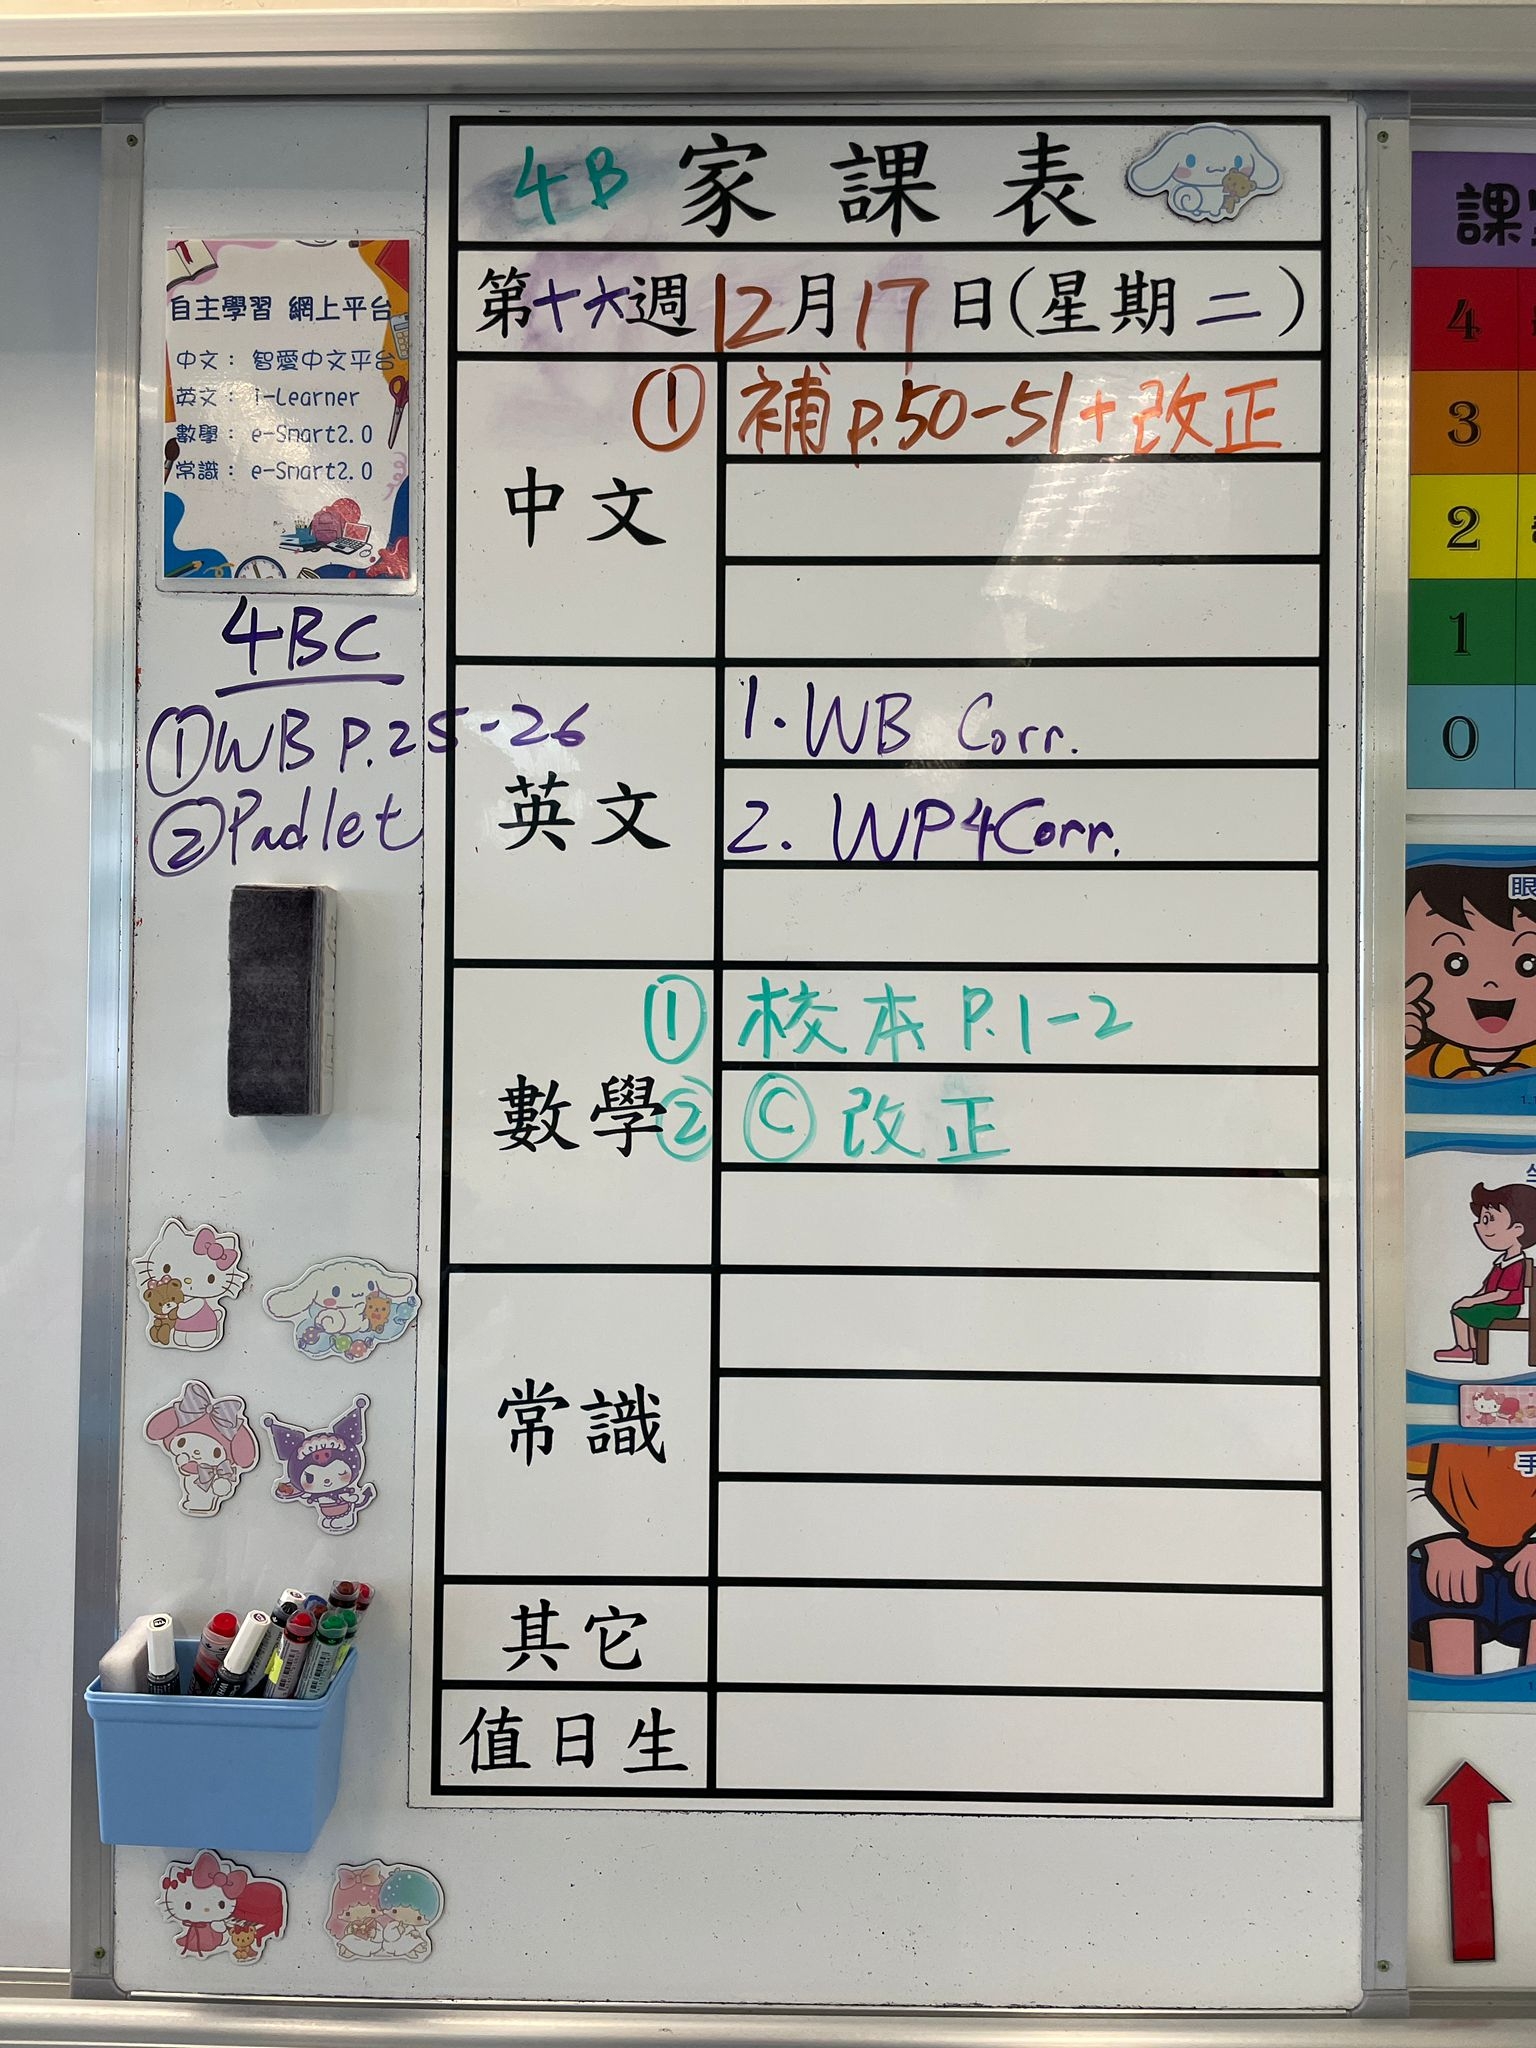 4B 家課表
第十六週 12月17日(星期二)
自主學習 網上平台
中文： 智愛中文平台
英文： i-Learner
數學： e-Smart2.0
常識： e-Smart2.0
4BC
①WB P.25-26
②Padlet
中文
① 補 p.50-51 + 改正
英文
1. WB Corr.
2. WP4 Corr.
數學
① 校本 P.1-2
② Ⓒ 改正
常識
其它
值日生
課
4
3
2
1
0
眼
手